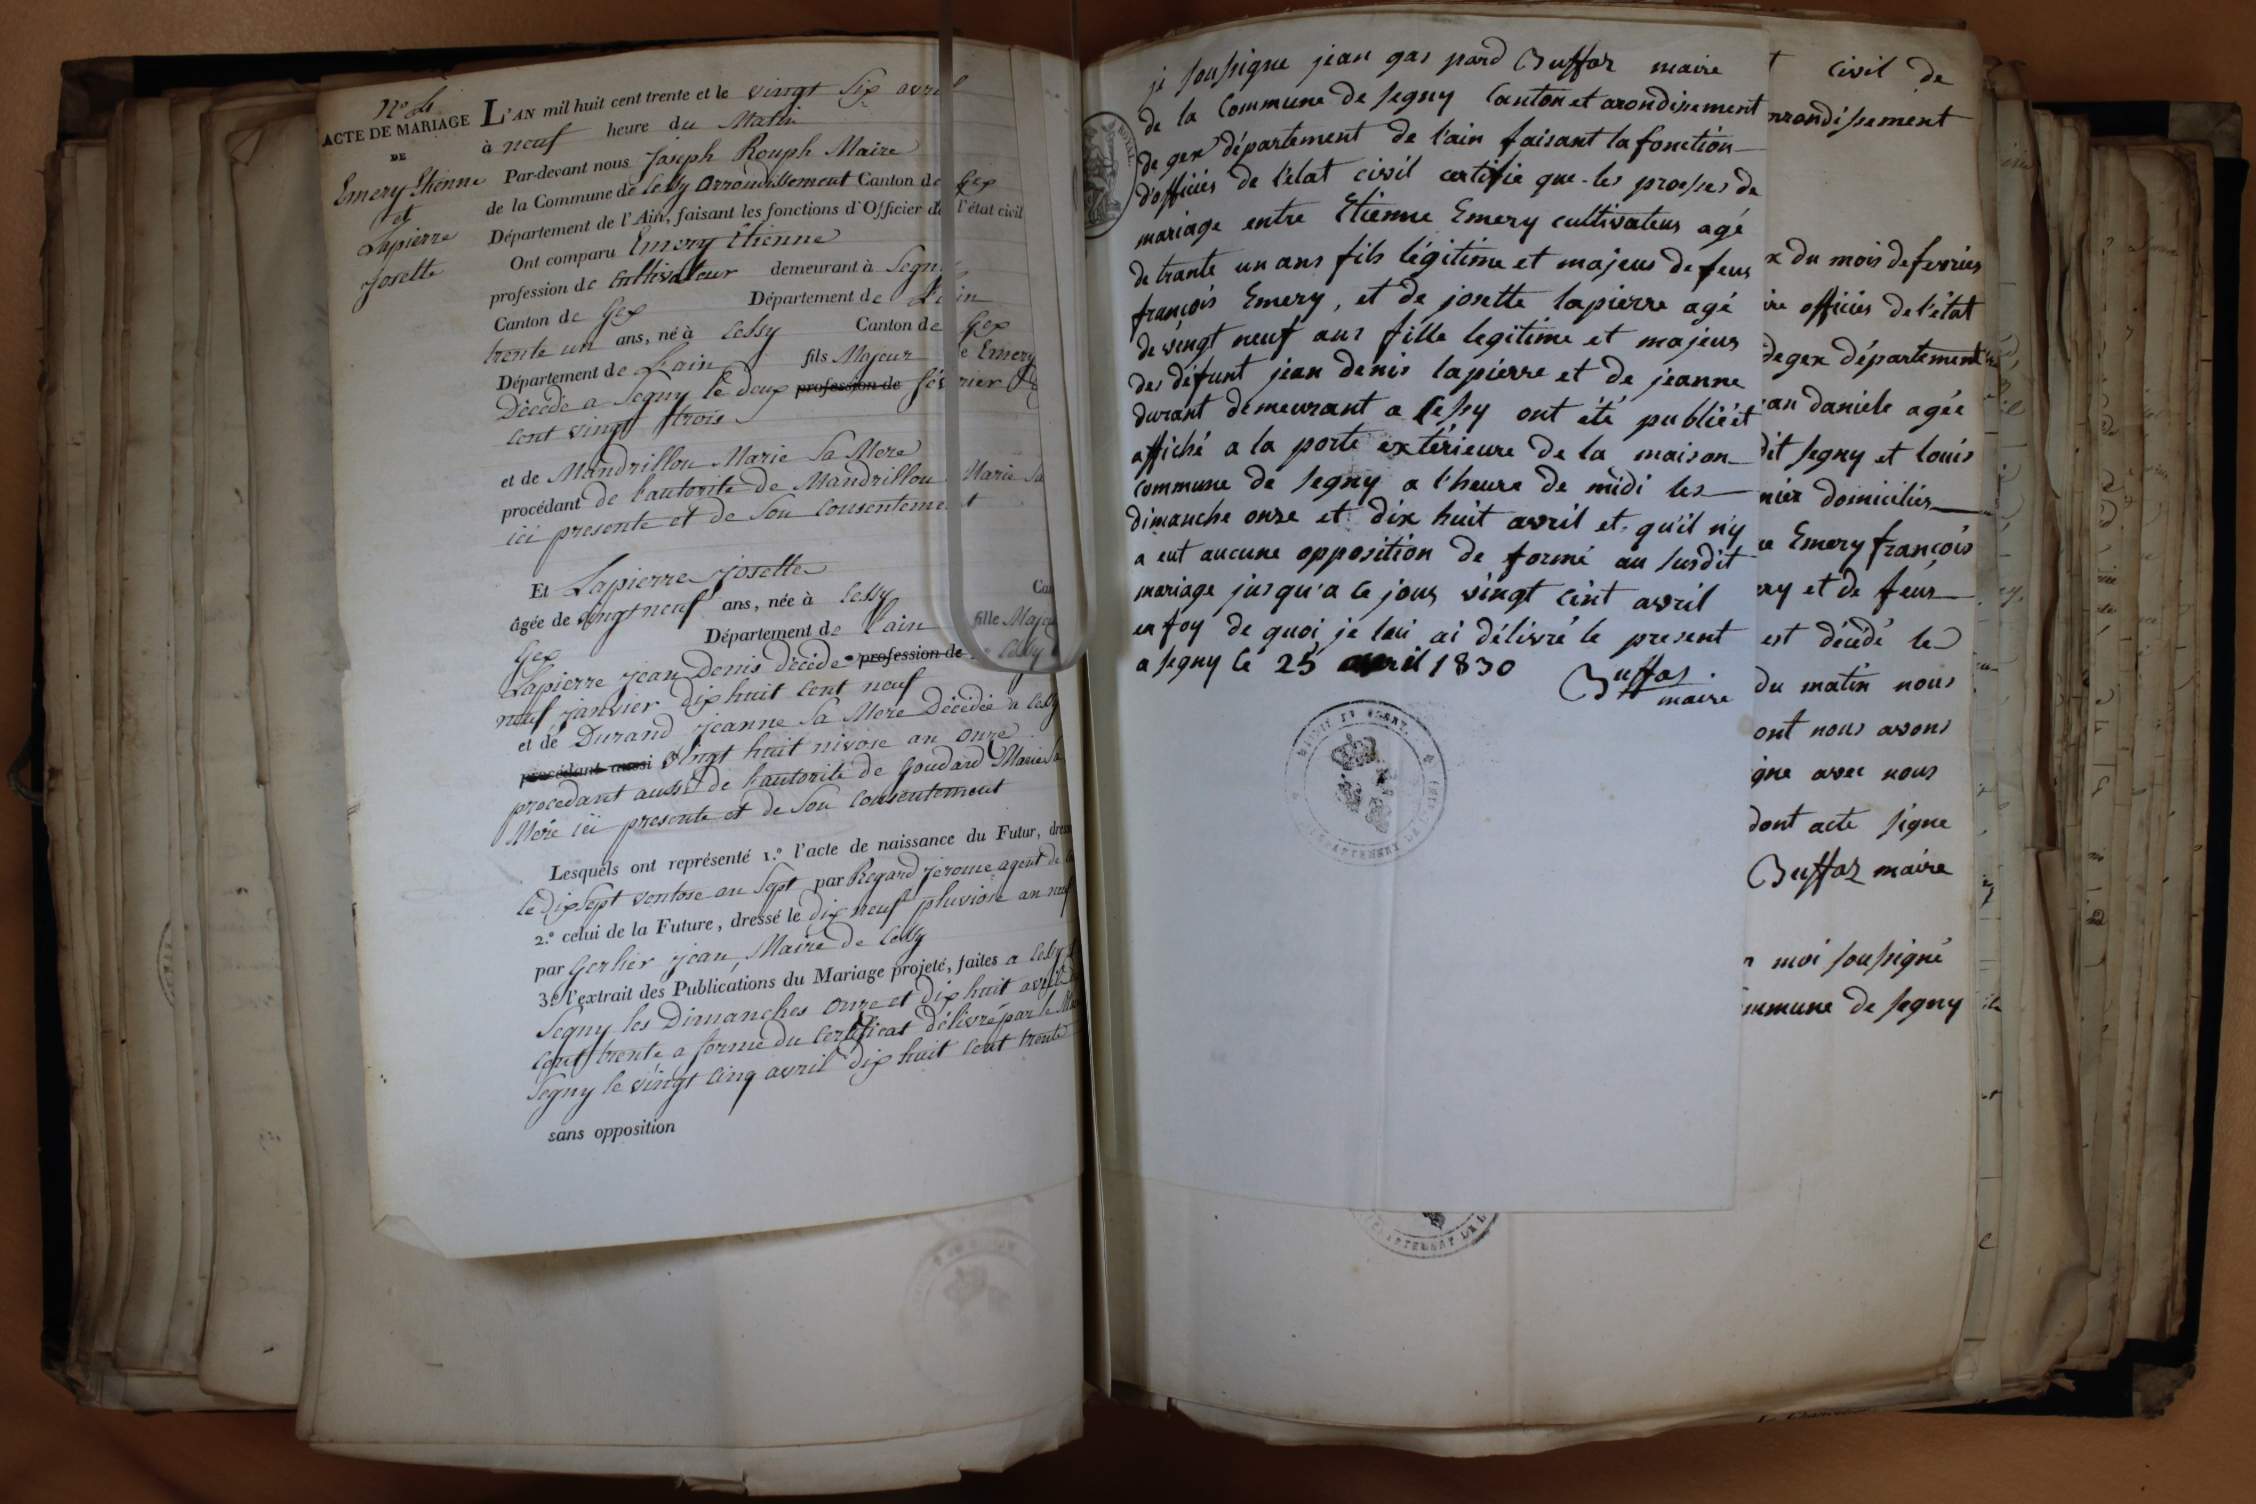 N° 4
ACTE DE MARIAGE
DE
Emery Etienne
et
Lapierre
Josette
L'AN mil huit cent trente et le vingt Six avril
à neuf heure du Matin
Par-devant nous Joseph Rouph Maire
de la Commune de Cessy Arrondissement Canton de Gex
Département de l'Ain, faisant les fonctions d'Officier de l'état civil
Ont comparu Emery Etienne
profession de Cultivateur demeurant à Segny
Canton de Gex Département de L'ain
trente un ans, né à Cessy Canton de Gex
Département de L'ain fils Majeur de Emery
Décédé a Segny le deux profession de février
cent vingt trois
et de Mandrillon Marie Sa Mere
procédant de l'autorité de Mandrillon Marie Sa
ici presente et de Son Consentement
Et Lapierre Josette
âgée de vingt neuf ans, née à Cessy Can
Gex Département de L'ain fille Majeu
Lapierre Jean Denis Décédé profession de Cessy
neuf janvier dix huit cent neuf
et de Durand Jeanne Sa Mere Décédée a Cessy
procédant aussi vingt huit nivose an onze
procedant aussi de l'autorité de Goudard Marie Sa
Mere ici presente et de Son Consentement
Lesquels ont représenté 1.° l'acte de naissance du Futur, dressé
le Dix Sept ventose an Sept par Regard jerome agent de
2.° celui de la Future, dressé le dix neuf pluviose an neuf
par Gerlier jean, Maire de Cessy
3.° l'extrait des Publications du Mariage projeté, faites a Cessy
Segny les Dimanches onze et dix huit avril
cent trente a forme du Certificat délivré par le Maire
Segny le vingt cinq avril dix huit cent trente
sans opposition
je soussigne jean gas pard Buffaz maire
de la Commune de segny Canton et arondisement
de gex département de l'ain faisant la fonction
d'officiés de l'état civil certifie que les prosses de
mariage entre Etienne Emery cultivateus agé
de trante un ans fils légitime et majeus de feus
françois Emery, et de josette lapierre agé
de vingt neuf ans fille legitime et majeus
des défunt jean denis lapierre et de jeanne
durant demeurant a Cessy ont été publié et
affiché a la porte extérieure de la maison
commune de segny a l'heure de midi les
dimanche onze et dix huit avril et qu'il n'y
a eut aucune opposition de formé au susdit
mariage jusqu'a ce jous vingt cint avril
en foy de quoi je lui ai délivré le present
a segny le 25 avril 1830
Buffaz
maire
civil de
arrondissement
x du mois de fevriés
ire officiés de l'état
de gex département
an daniele agée
dit segny et louis
nier domiciliés
ue Emery françois
ery et de feus
est décédé le
du matin nous
ont nous avons
igne avec nous
dont acte signe
Buffaz maire
moi soussigné
ommune de segny